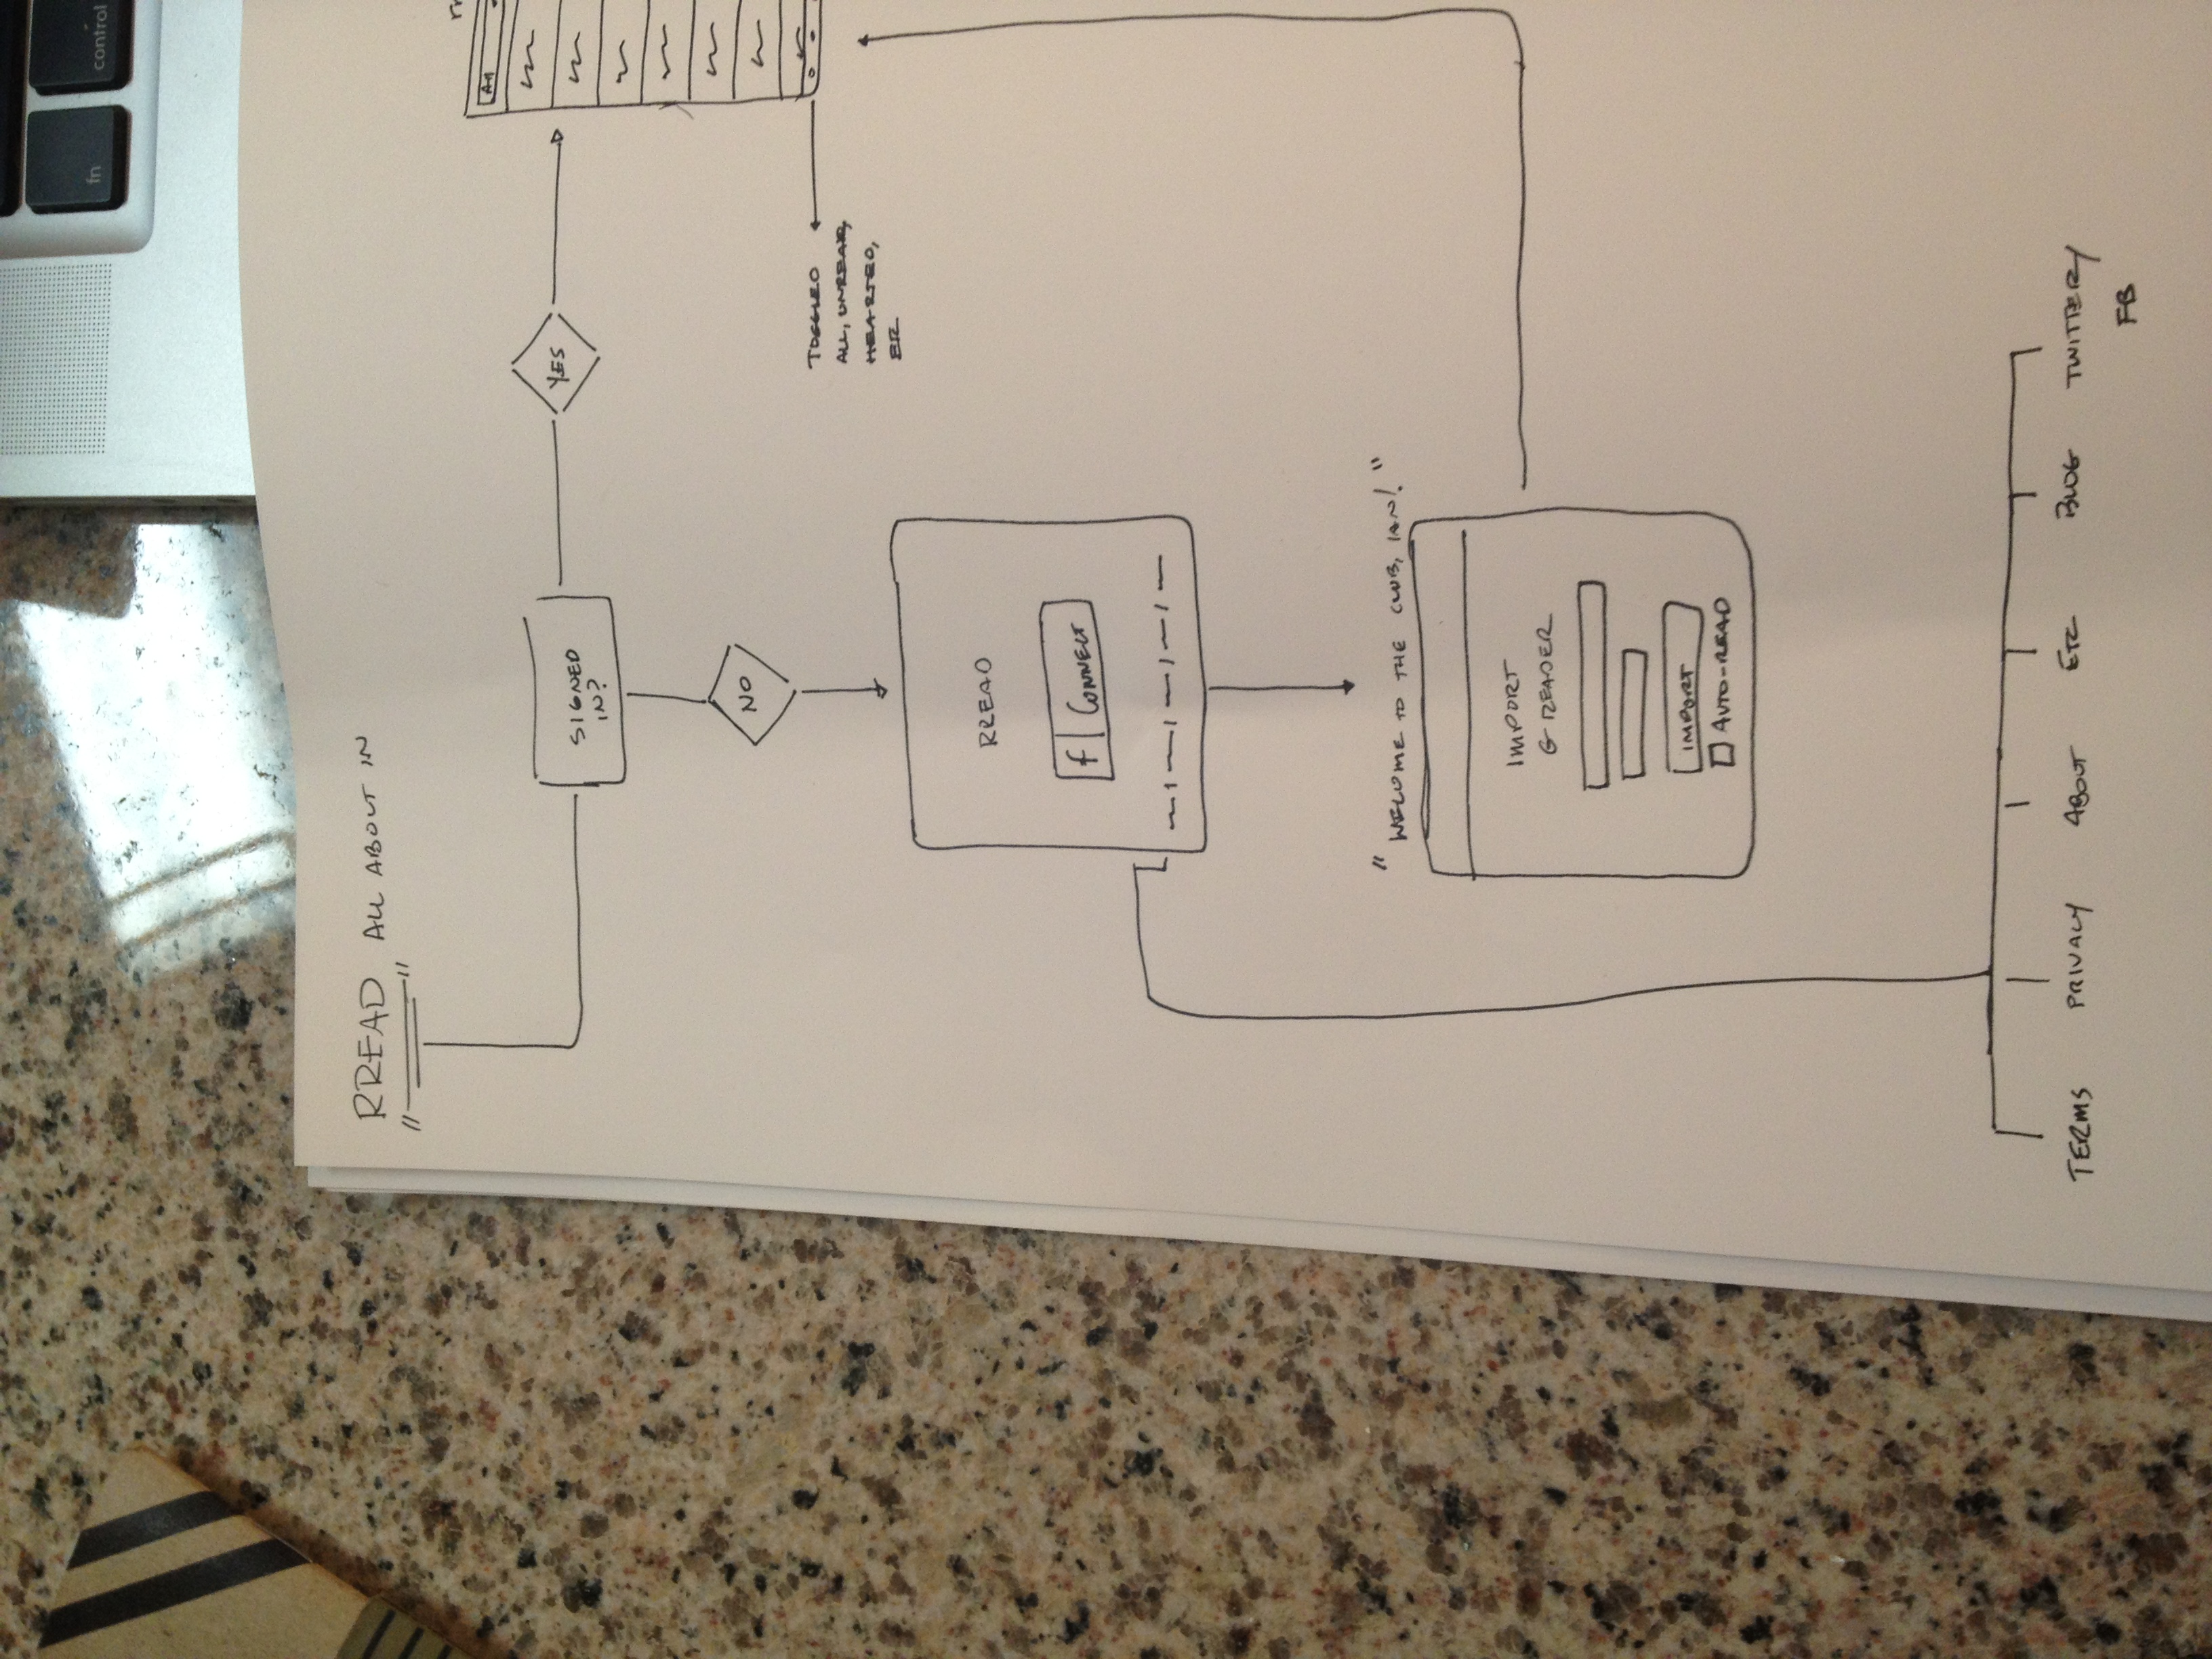 fn
control
RREAD ALL ABOUT IN
SIGNED
IN?
YES
NO
TOGGLED
ALL, UNREAD,
HEARTED,
RREAD
f CONNECT
"WELCOME TO THE CLUB, IAN!"
IMPORT
G READER
IMPORT
AUTO-READ
TERMS PRIVACY ABOUT ETC BLOG TWITTER/
FB